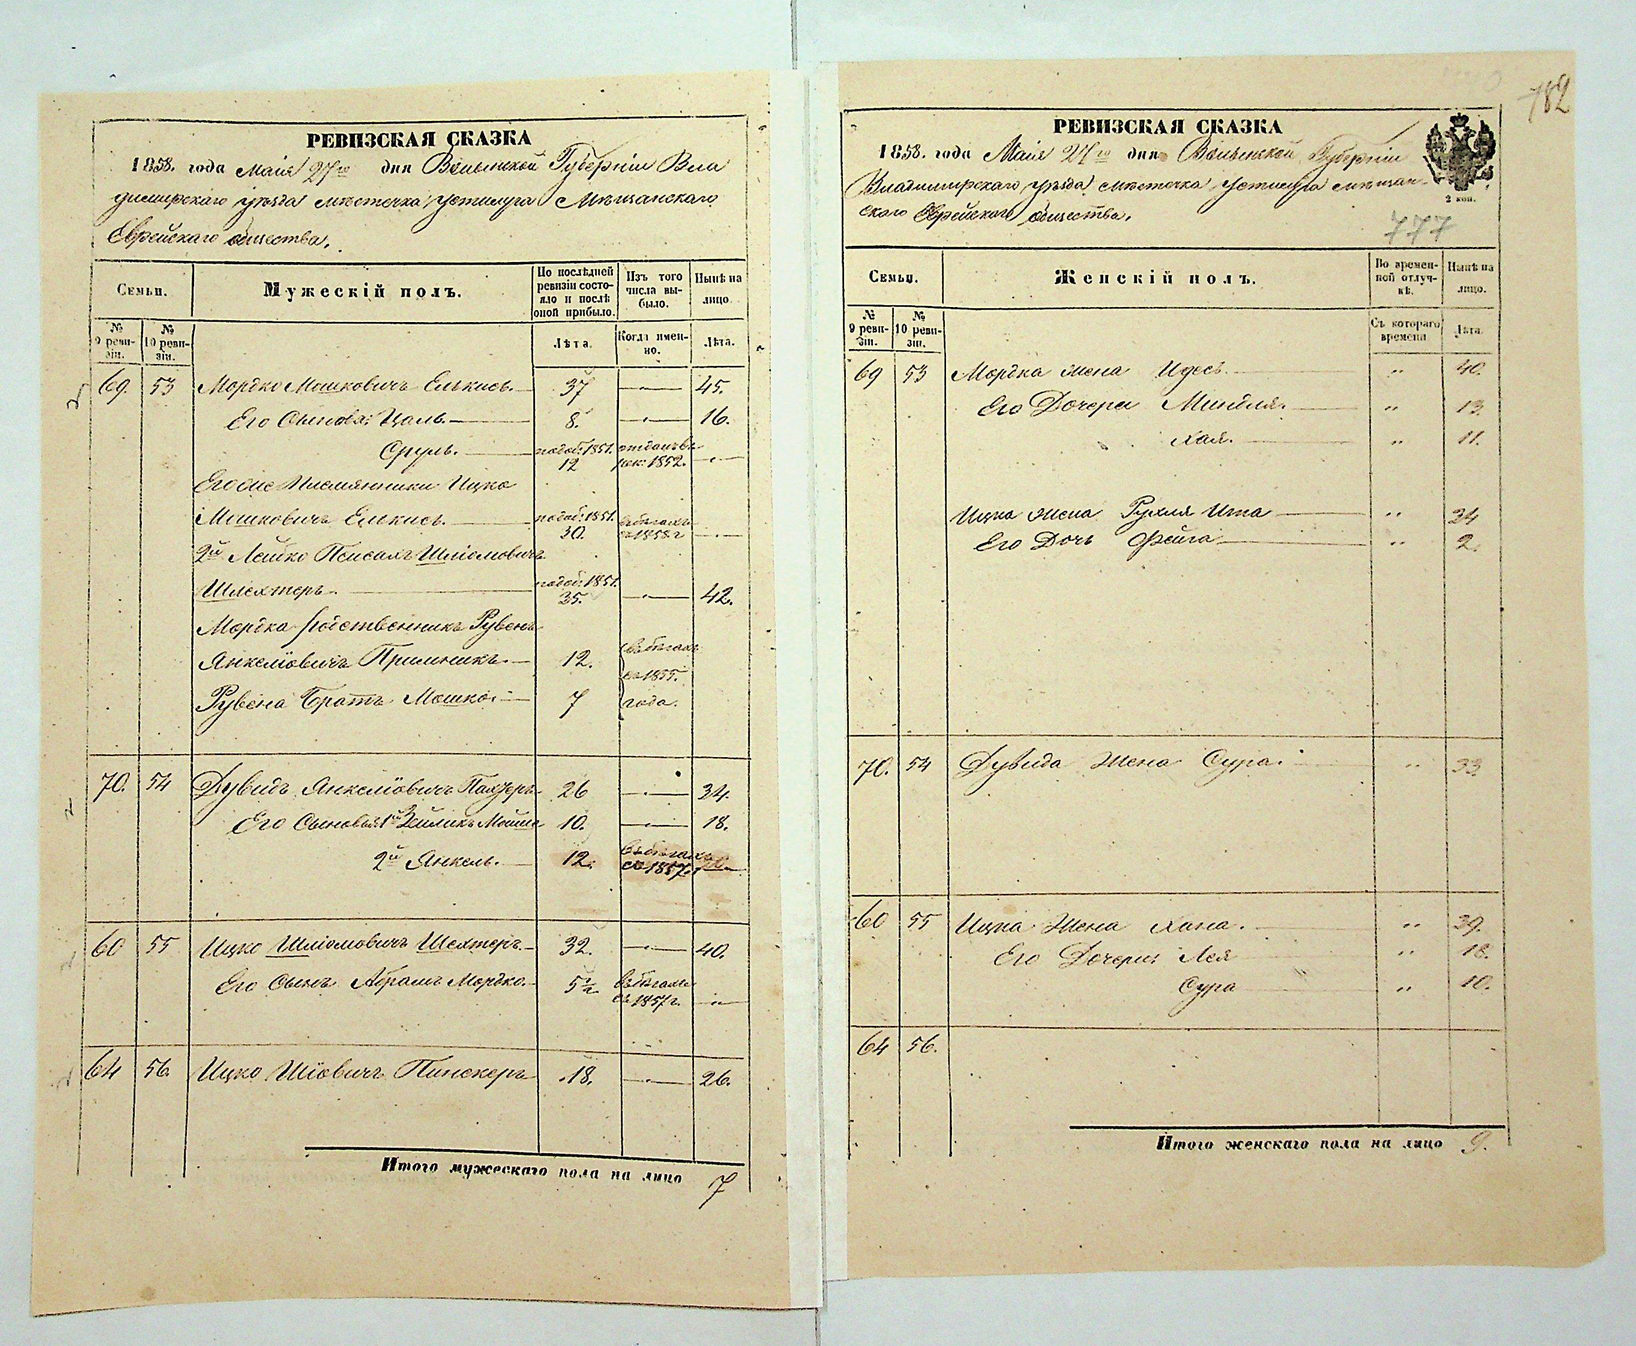 РЕВИЗСКАЯ СКАЗКА
1858. года Маія 27го дня Волынской Губерніи Вла
димирскаго уѣзда мѣстечка Устилуга Мѣщанскаго
Еврейскаго общества.
Семьи.
Мужескій полъ.
По послѣдней ревизіи состояло и послѣ оной прибыло.
Изъ того числа выбыло.
Нынѣ на лицо.
№ 9 ревизіи.
№ 10 ревизіи.
Лѣта.
Когда именно.
Лѣта.
69. 53 Мордко Мошковичъ Елькись 37 — 45.
Его Сыновья: Цаль. 8. — 16.
Сруль. 12 1851. отданъ въ рек: 1852. —
Его же Племянники Ицко
Мошковичъ Елькись. 1851. 30. въ бѣгахъ съ 1858 г —
2й Лейко Пейсахъ Шліомовичъ
Шлехтеръ. 1851. 35. — 42.
Мордка родственникъ Рувенъ
Янкеліовичъ Прилникъ. 12. въ бѣгахъ
съ 1855.
Рувена Братъ Мошко. 7 года.
70. 54 Дувидъ Янкеліовичъ 26 — 34.
Его Сыновья: 1й Зейликъ Мошко 10. — 18.
2й Янкель. 12. въ бѣгахъ съ 1857. г —
60 55 Ицко Шліомовичъ Шехтеръ 32. — 40.
Его Сынъ Абрамъ Мордко. 5½ въ бѣгахъ съ 1857 г. —
64 56. Ицко Шіовичъ Пинскеръ 18. — 26.
Итого мужескаго пола на лицо 7
782
РЕВИЗСКАЯ СКАЗКА
1858. года Маія 27го дня Волынской Губерніи
Владимирскаго уѣзда мѣстечка Устилуга мѣщан-
скаго Еврейскаго общества.
2 коп.
777
Семьи.
Женскій полъ.
Во временной отлучкѣ.
Нынѣ на лицо.
№ 9 ревизіи.
№ 10 ревизіи.
Съ котораго времени
Лѣта.
69 53 Мордка жена Идесъ. " 40.
Его Дочери Миндля. " 13.
Хая. " 11.
Ицка жена Рухля Ита " 24
Его Дочь Фейга " 2.
70. 54 Дувида Жена Сура. " 33
60 55 Ицка Жена Хана. " 39.
Его Дочери: Лея " 18.
Сура " 10.
64 56.
Итого женскаго пола на лицо 9.